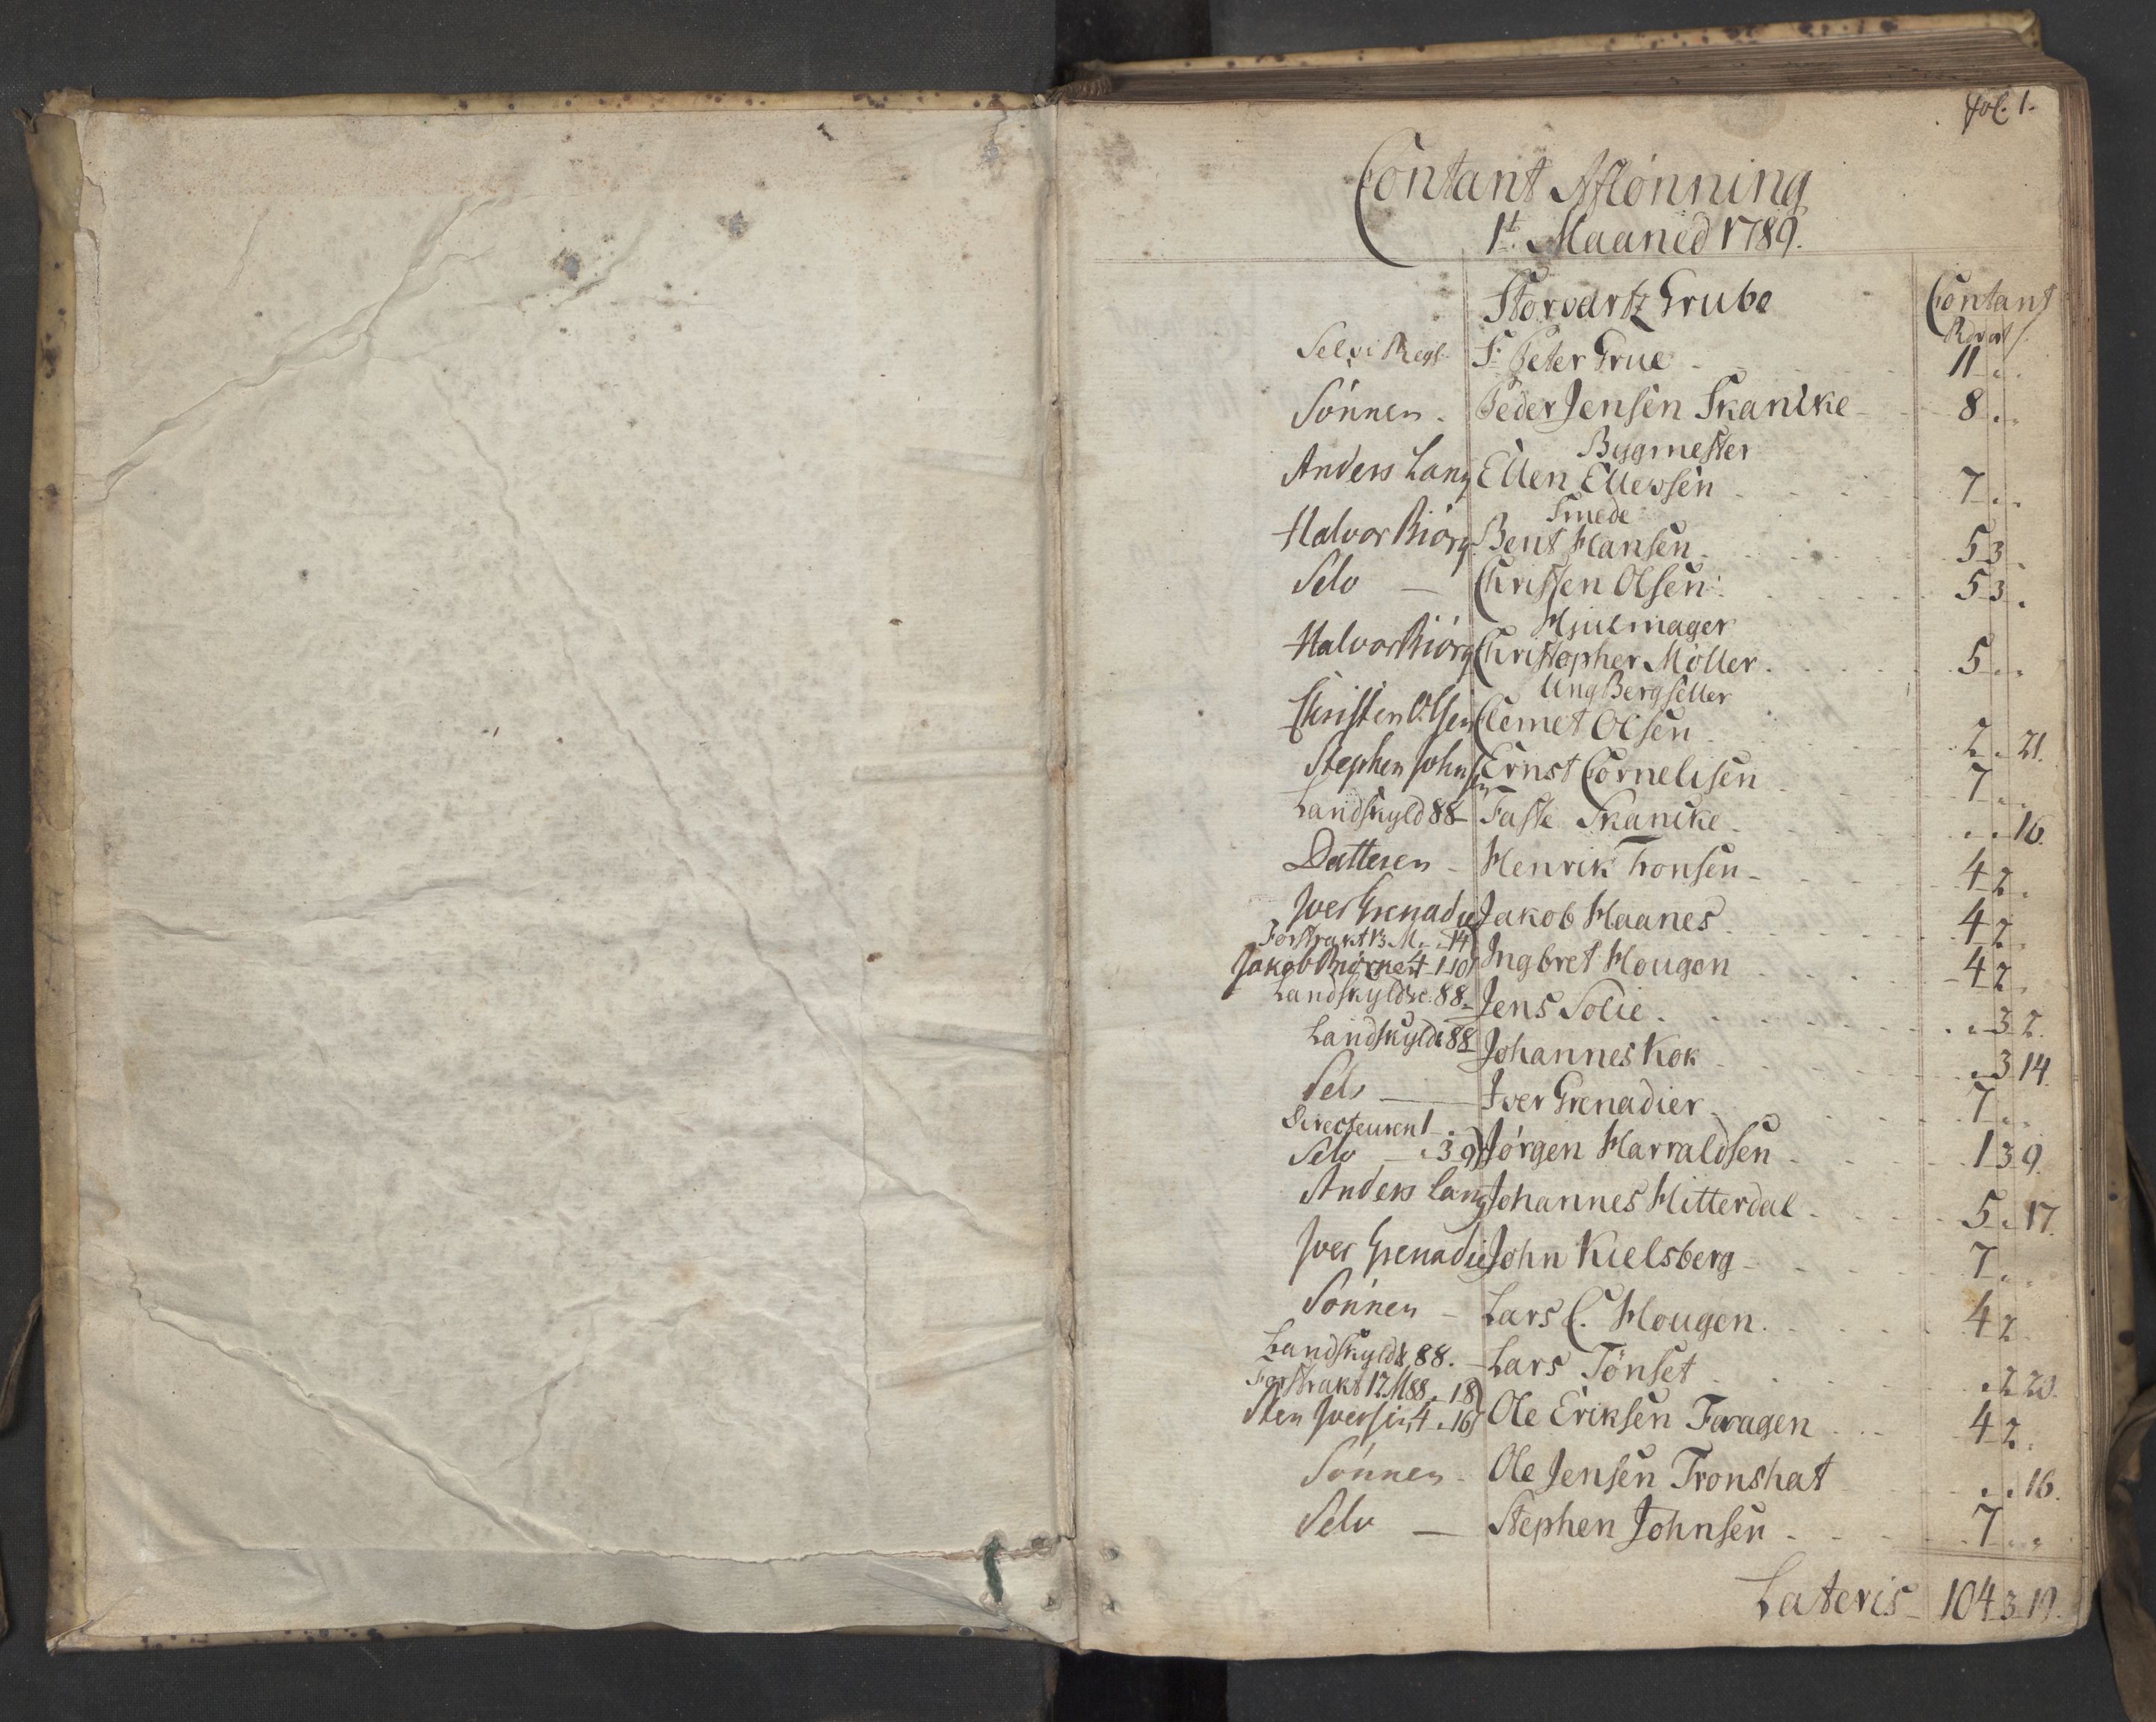 fol. 1.
Contant Aflønning
1t. Maaned 1789.
Storvartz Grube Contant
Rdr ort s
Selv i Regl. S. Peter Grue 11 . .
Sønnen Peder Jensen Skancke 8 . .
Bygmester
Anders Lang Ellen Ellevsen 7 . .
Smede
Halvor Biørg Bent Hansen 5 3 .
Selv — Christen Olsen 5 3 .
Hjulmager
Halvor Biørg Christopher Möller 5 . .
Ung Bergseller
Christen Olsen Clemet Olsen 2 . 21.
Stephen Johnsen Ernst Cornelisen 7 . .
Landskyld 88 Faste Skancke . . 16.
Datteren Henrik Tronsen 4 2 .
Iver Grenadie Jakob Haanes 4 2 .
Forstrakt 13 M. . 14
Jakob Biørnert 4 1 10 Ingbret Hougen 4 2 .
Landskyld 88 Jens Solie . 3 2.
Landskyld 88 Johannes Kok . 3 14.
Selv — Iver Grenadier 7 . .
Directeuren 1 . .
Selv . 3 9 Jørgen Harraldsen 1 3 9.
Anders Lang Johannes Hitterdal 5 . 17.
Iver Grenadie John Kielsberg 7 . .
Sønnen Lars C. Hougen 4 2 .
Landskyld 88. Lars Tönset . 2 20.
Forstrakt 12 M 88 . 18
Sten Iversen 4 . 16 Ole Eriksen Faragen 4 2 .
Sønnen Ole Jensen Tronshat . . 16.
Selv — Stephen Johnsen 7 . .
Lateris 104 3 19.